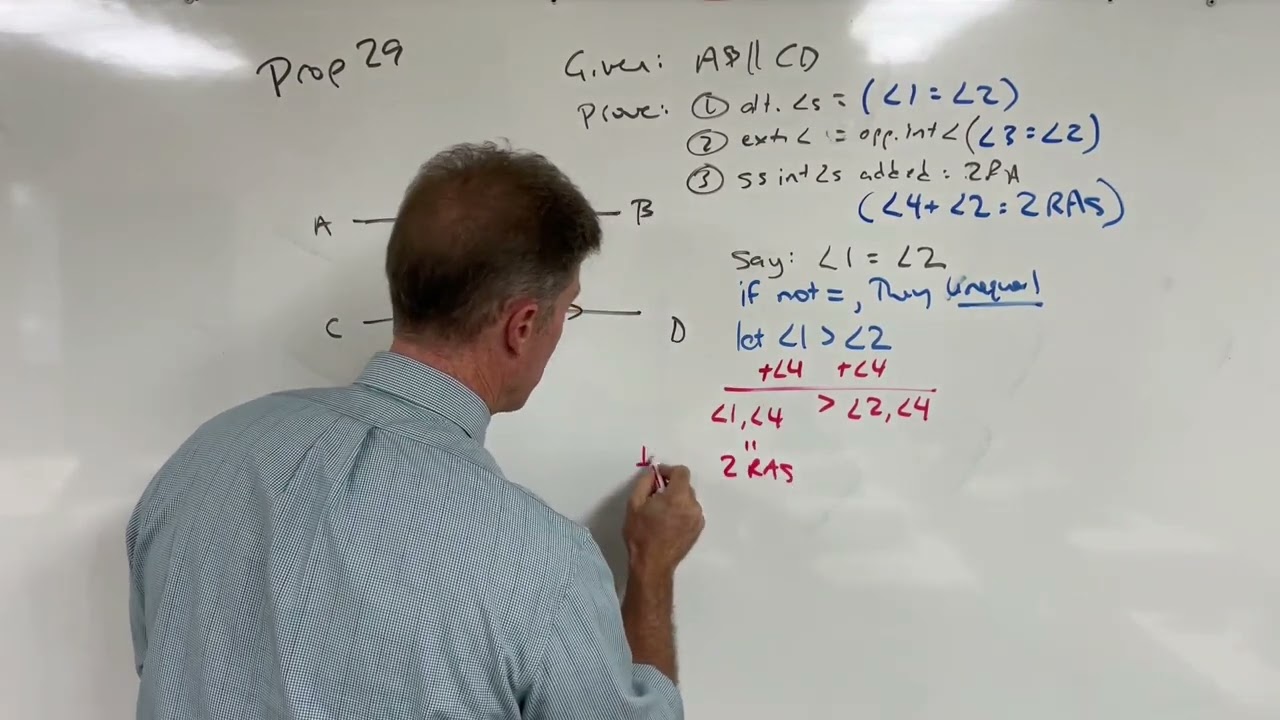 Prop 29
Given: AB || CD
Prove: ① alt. ∠s = (∠1 = ∠2)
② ext. ∠ = opp. int ∠ (∠3 = ∠2)
③ ss int ∠s added = 2RA
(∠4 + ∠2 = 2 RAs)
A B
Say: ∠1 = ∠2
if not =, They unequal
C D
let ∠1 > ∠2
+∠4 +∠4
∠1, ∠4 > ∠2, ∠4
=
2 RAs